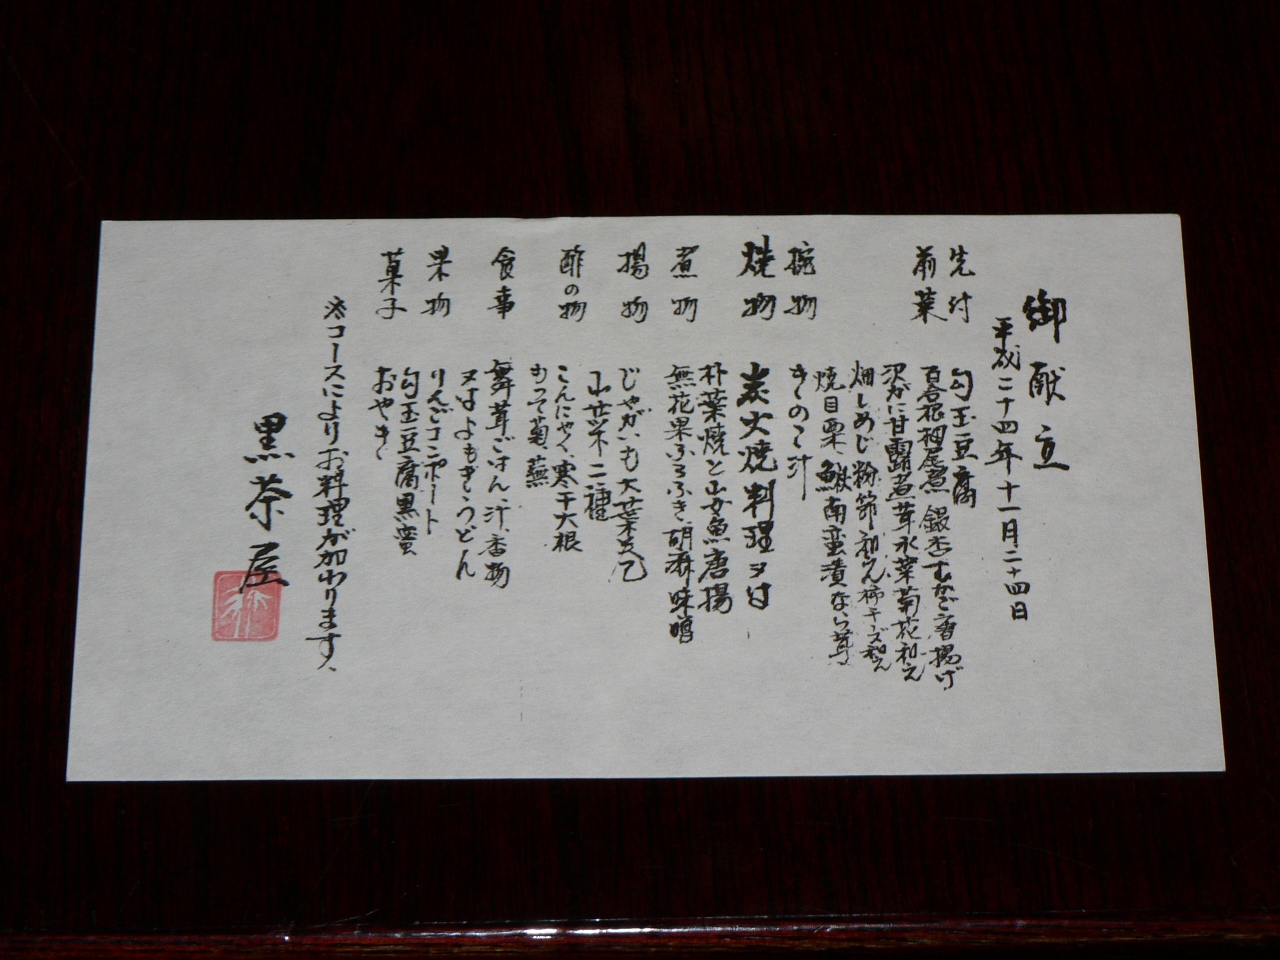 御献立
平成二十四年十一月二十四日
先付 勾玉豆腐
前菜 百合根梅尾煮 銀杏むかご唐揚げ
沢がに甘露煮 茸氷菜菊花和え
畑しめじ粉節和え 柿チーズ和え
焼目栗、鰍南蛮漬 なら茸
椀物 きのこ汁
焼物 炭火焼料理又は
朴葉焼と山女魚唐揚
煮物 無花果ふろふき 胡麻味噌
揚物 じゃがいも大葉天乙
山菜二種
酢の物 こんにゃく、寒干大根
もって菊、蕪
食事 舞茸ごはん、汁、香物
又はよもぎうどん
果物 りんごコンポート
菓子 勾玉豆腐黒蜜
おやき
※コースによりお料理が加わります、
黒茶屋